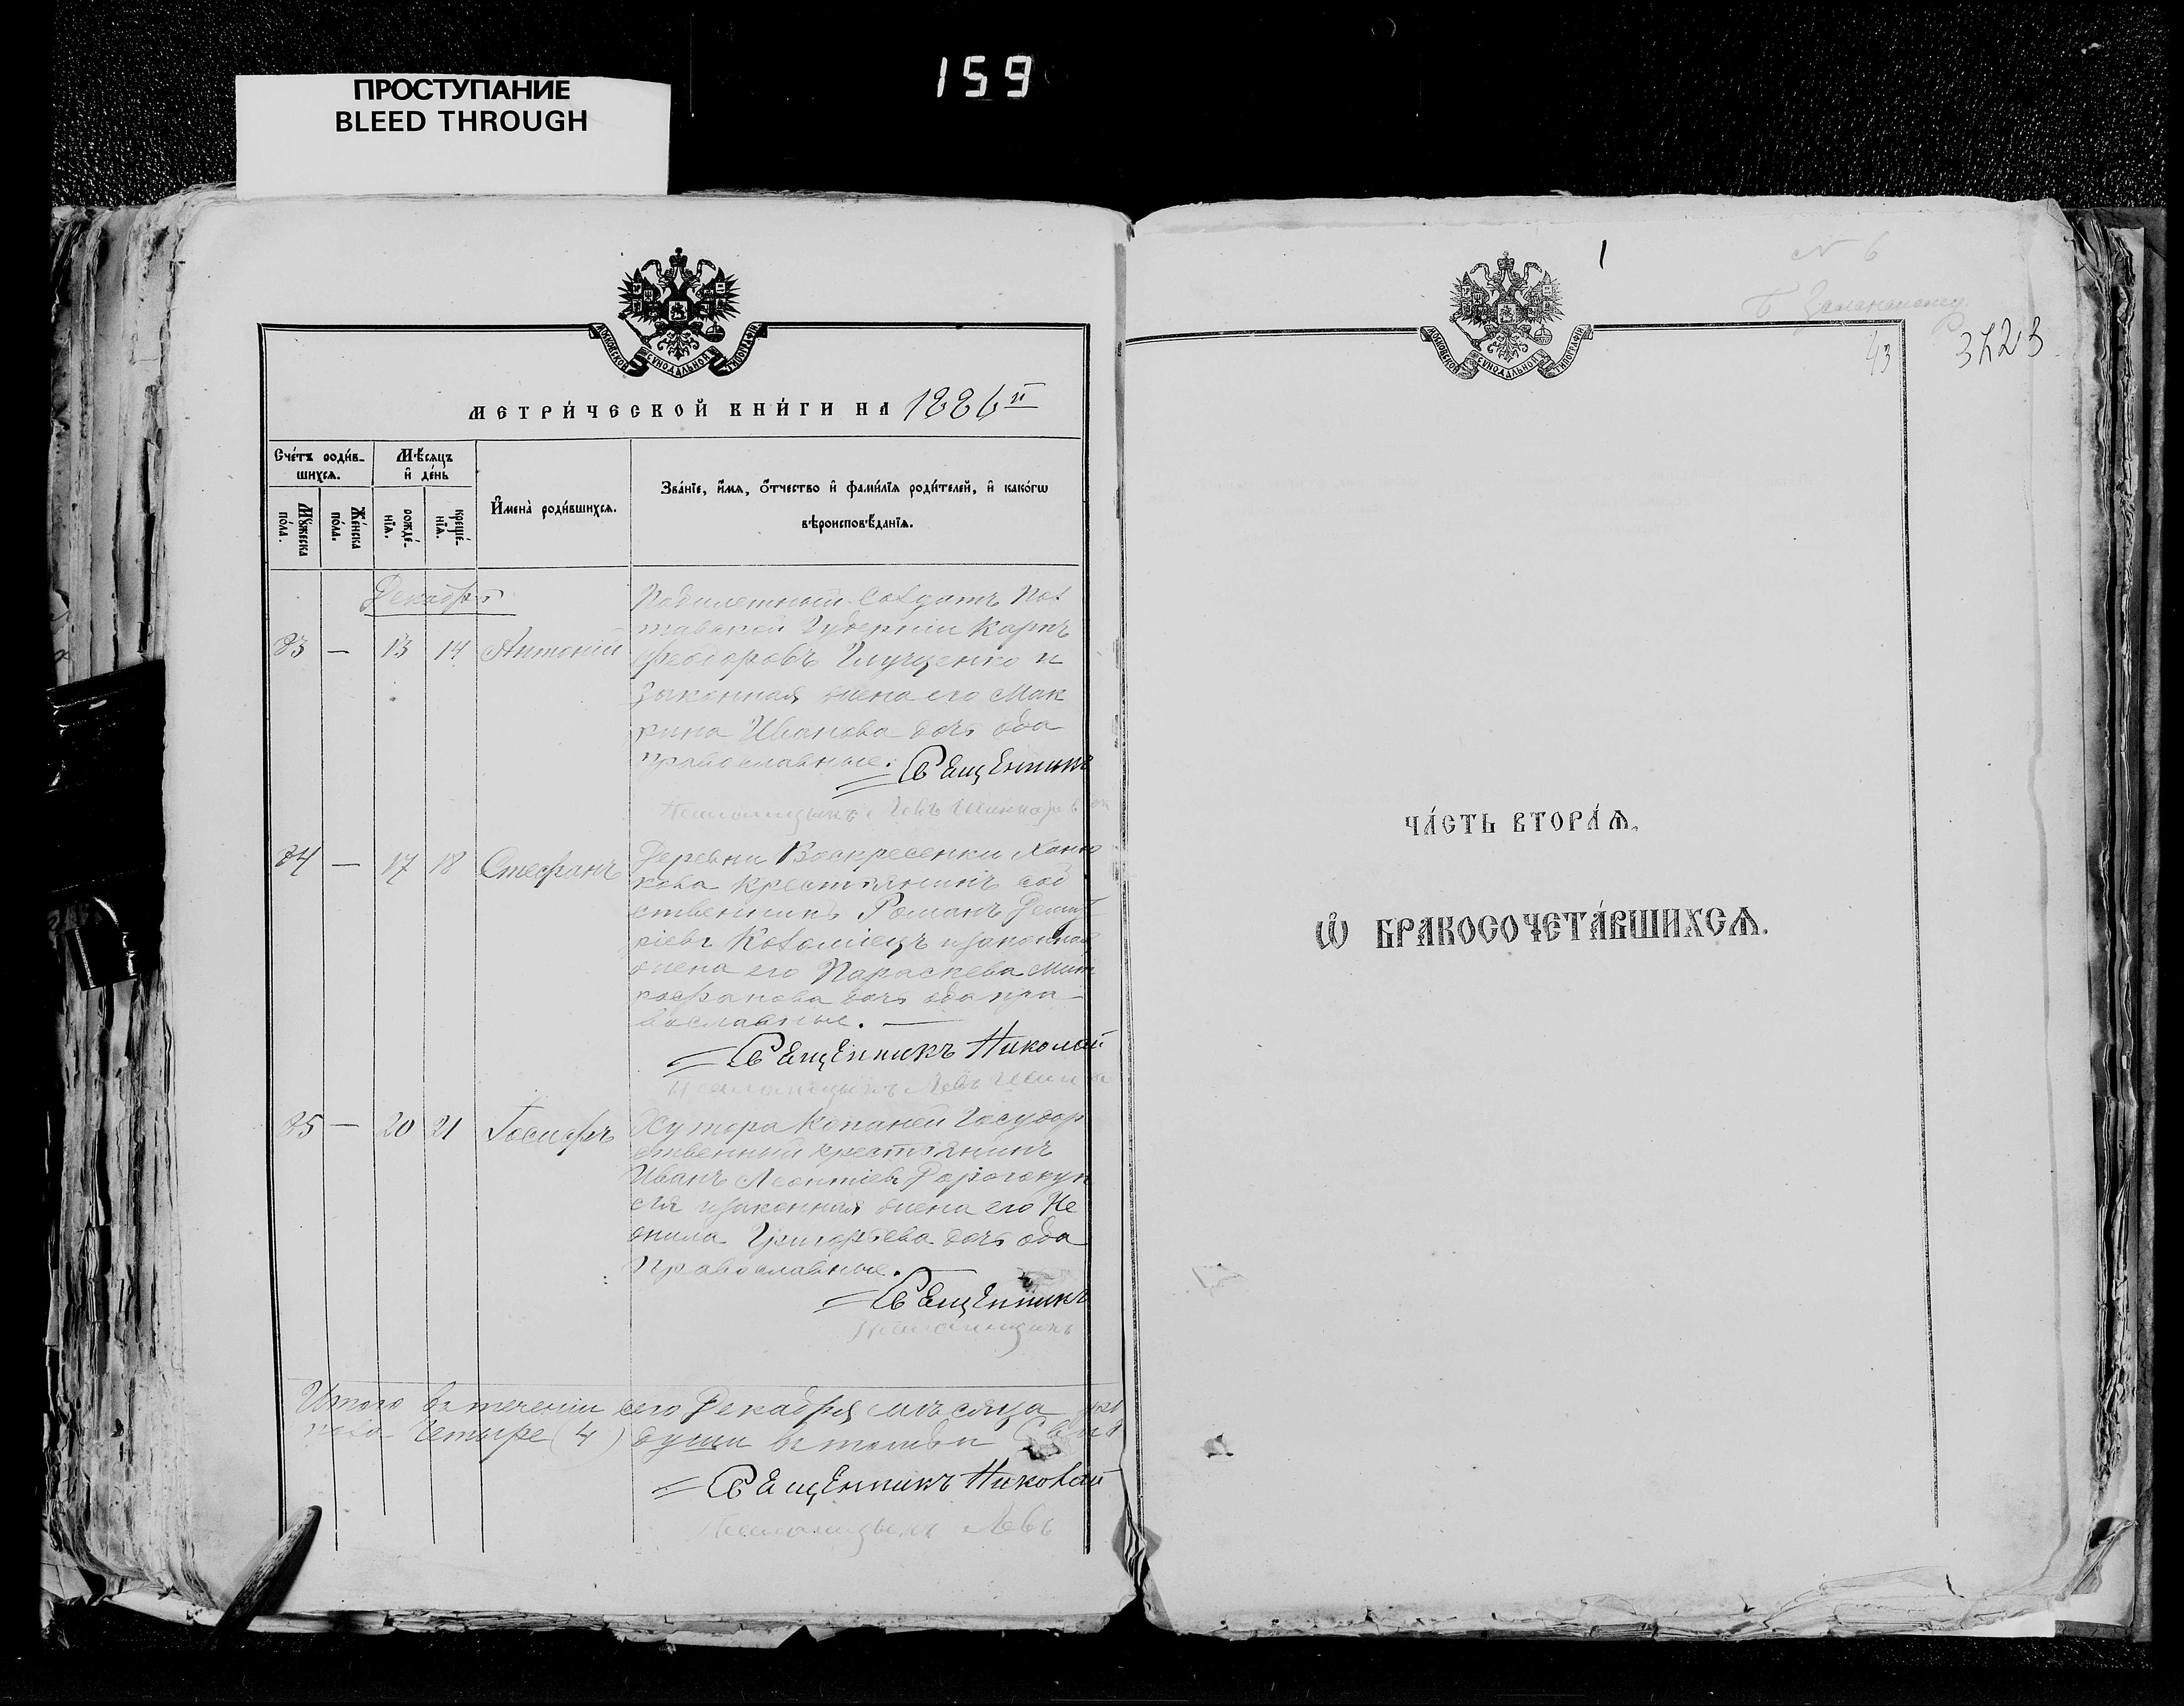 159
ПРОСТУПАНИЕ
BLEED THROUGH
МОСКОВСКОЙ СѴНОДАЛЬНОЙ ТИПОГРАФІИ
МЕТРИ́ЧЕСКОЙ КНИ́ГИ НА 1886й
Сче́тъ роди́в-
шихсѧ.
Мꙋ́жеска по́ла.
Же́нска по́ла.
Мѣ́сѧцъ
и҆ де́нь
рожде́-
нїѧ.
креще́-
нїѧ.
И҆мена̀ роди́вшихсѧ.
Зва́нїе, и҆́мѧ, ѻ҆́тчество и҆ фами́лїѧ роди́телей, и҆ како́гѡ
вѣроисповѣ́данїѧ.
Декабрь
83 — 13 14 Антоній
Побилетный Солдатъ Пол
тавской Губерніи Карпъ
Феодоровъ Глущенко и
законная жена его Мак
рина Иванова дочь оба
православные. Священникъ
Псаломщикъ Левъ
84 — 17 18 Стефанъ
Деревни Воскресенки Ханю
кова крестьянинъ соб
ственникъ Романъ Димит
ріевъ Коломіецъ изаконная
жена его Параскева Мит
рофанова дочь оба пра-
вославные. —
Священникъ Николай
Псаломщикъ Левъ
85 — 20 21 Іосифъ
Хутора Копаней Государ
ственный крестьянинъ
Иванъ Леонтіевъ Дорогокуп
ля изаконная жена его Не
онила Григорьева дочь оба
Православные.
Священникъ
Псаломщикъ
Итого въ теченіи сего Декабря мѣсяца
Четыре (4) души
Священникъ Николай
Псаломщикъ Левъ
1
N 6
43
3723
МОСКОВСКОЙ СѴНОДАЛЬНОЙ ТИПОГРАФІИ
ЧА́СТЬ ВТОРА́Ѧ.
Ѽ БРАКОСОЧЕТА́ВШИХСѦ.